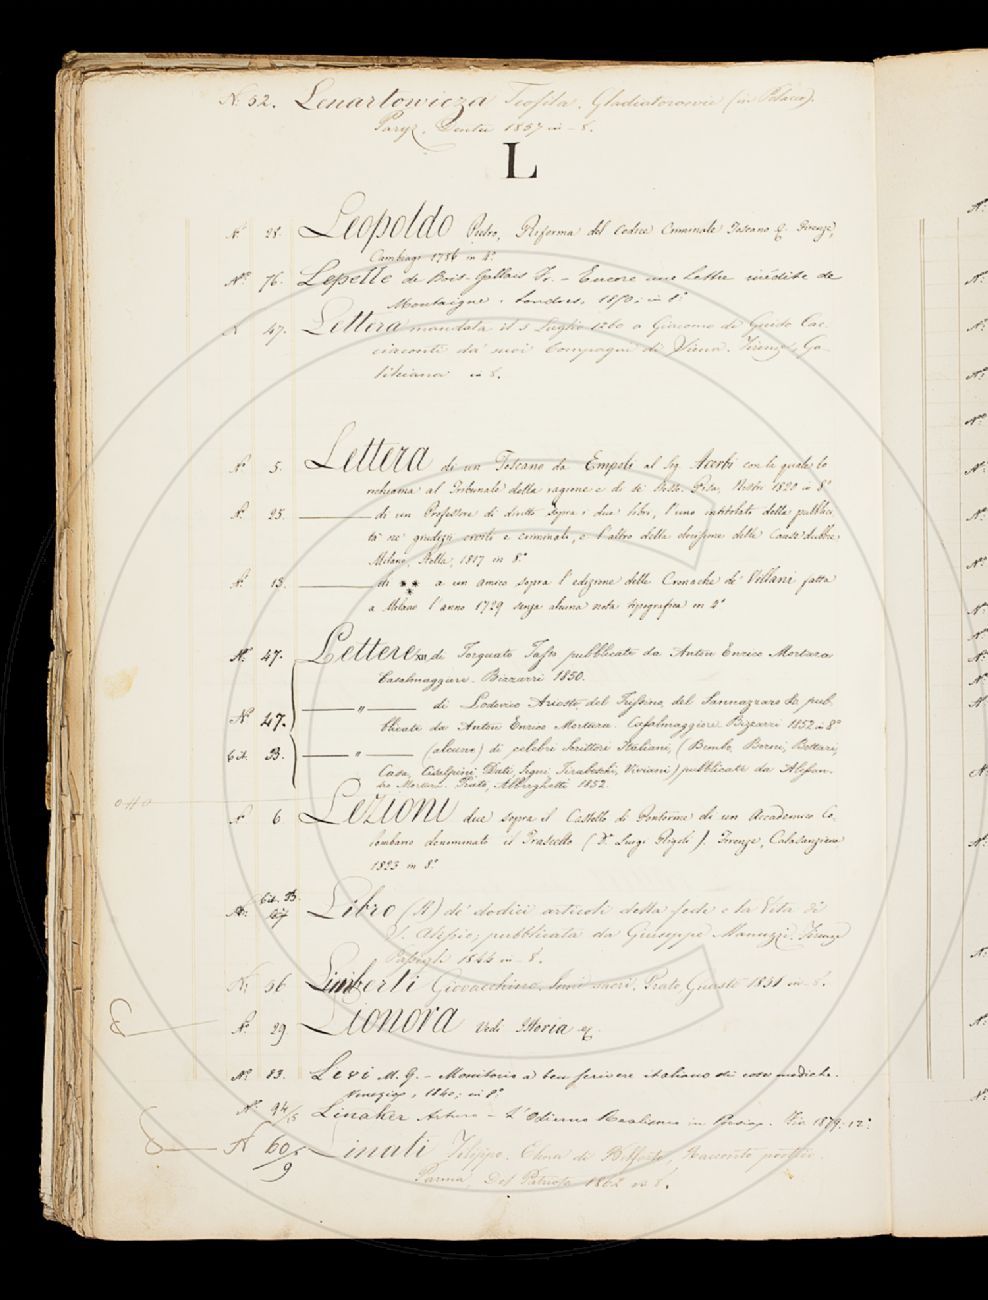 N. 52. Lenartowicza Teofila. Gladiatorowie (in Polacco).
Paryz. Dentu 1857 in-8.
L
N.° 28. Leopoldo Pietro, Riforma del Codice Criminale Toscano &. Firenze,
Cambiagi 1786 in 4.°
N.° 76. Lepelle de Bois-Gallais Fr. - Encore une Lettre inédite de
Montaigne. Londres, 1850; in 8°
N. 47. Lettera mandata il 5 Luglio 1260 a Giacomo di Guido Cac-
ciaconti da' suoi Compagni di Siena. Firenze, Ga-
lileiana in 8.
N.° 5. Lettera di un Toscano da Empoli al Sig. Acerbi con la quale lo
richiama al Tribunale della ragione e di sè stesso. Pisa, 1820 in 8°
N.° 25. di un Professore di diritto sopra i due libri, l'uno intitolato della pubblici-
tà ne' giudizii civili e criminali, e l'altro della decisione delle Cause dubbie.
Milano, Stella, 1817 in 8.°
N.° 13. di ** a un amico sopra l'edizione delle Cronache de' Villani fatta
a Milano l'anno 1729 senza alcuna nota tipografica in 4°
N.° 47. Lettere XII di Torquato Tasso pubblicate da Anton Enrico Mortara
Casalmaggiore. Bizzarri 1850.
N.° 47. " di Lodovico Ariosto, del Trissino, del Sannazzaro &. pub-
blicate da Anton Enrico Mortara. Casalmaggiore Bizzarri 1852 in 8°
bit. B. " (alcune) di celebri Scrittori Italiani, (Bembo, Berni, Bottari,
Casa, Cesalpini, Dati, Segni, Tiraboschi, Viviani) pubblicate da Alessan-
dro Mortara. Prato, Alberghetti 1852.
N.° 6 Lezioni due sopra il Castello di Pontormo di un Accademico Co-
lombario denominato il (D.r Luigi Rigoli). Firenze, Calasanziana
1823 in 8.°
bit. B.
N.° 127 Libro (Il) de' dodici articoli della fede e la Vita di
S. Alessio, pubblicata da Giuseppe Manuzzi. Firenze
Passigli 1844 in-8.
N.° 56 Limberti Giovacchino. Inni sacri. Prato, Guasti 1851 in-8.
N.° 29 Lionora Vedi Istoria &.
N.° 83. Levi M. G. - Monitorio a ben scrivere italiano di cose mediche.
Venezia, 1840; in 8°
N.° 94/8 Linaker Arturo - L'Odierno Realismo in Poesia. 1879. 12°
N 60/9 Linati Filippo. di Belforte, Racconto poetico.
Parma, Del Patriota 1862 in 8.